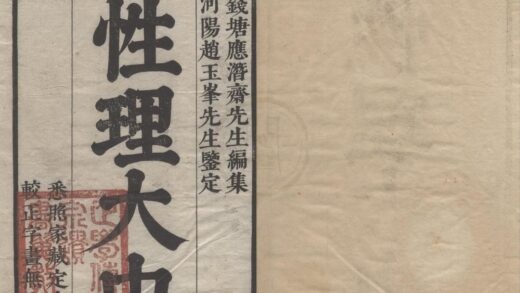 錢塘應潛齋先生編集
河陽趙玉峯先生鑒定
性理大中
悉照家藏定
較正予晝無